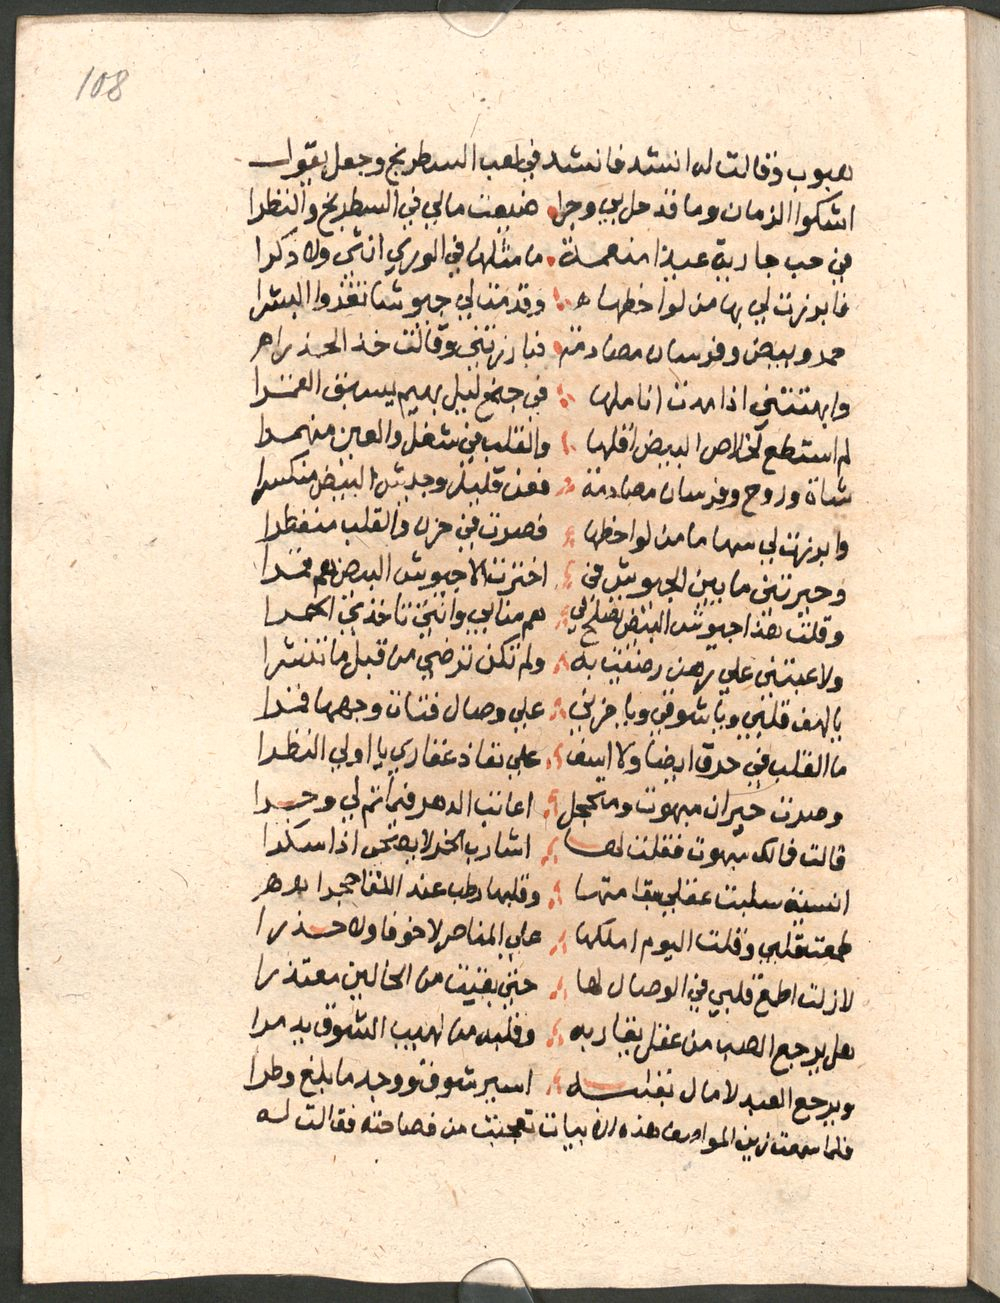 108
هبوب وقالت له انشد فانشد في لعب الشطرنج وجعل يقول
اشكوا الزمان وما قد حل بي وجرا ضيعت مالي في الشطرنج والنظرا
في حب جارية غيدا منعمة ما مثلها في الوري انثى ولا ذكرا
فابرزت لي بها من لواحظها وقدمت لي جيوشا تقذوا البشرا
حمر وبيض وفرسان مصادمة فبارزتني وقالت خذ الحذرا
وابهتتني اذا مدت اناملها في جنح ليل بهيم يسبق
لم استطع لخلاص البيض انقلها والقلب في شغل والعين منهمرا
شاة وروح وفرسان مصادمة فعن قليل وجيش البيض منكسرا
وابرزت لي سهاما من لواحظها فصرت في حزن والقلب منفطرا
وخيرتني ما بين الجيوش في اخترت الا جيوش البيض
وقلت هذا جيوش البيض تصلح لي هم مناي وانتي تاخذي الحمرا
ولاعبتني علي رهن رضيت به ولم تكن ترضي من قبل ما
يا لهف قلبي ويا شوقي ويا حزني علي وصال فتات وجهها قمرا
ما القلب في حرق ايضا ولا اسف علي نفاذ عقاري يا اولي النظرا
وصرت حيران مبهوت وفي خجل اعاتب الدهر فيما تم لي وجرا
قالت فمالك مبهوت فقلت لها اشارب الخمر لا يصحى اذا سكرا
انسية سلبت عقلي بقامتها وقلبها رطب عند اللقا حجرا
طمعت قلبي وقلت اليوم املكها علي المناصر لا خوفا ولا حذرا
لا زلت اطمع قلبي في الوصال لها حتى بقيت من الحالين معتذرا
هل يرجع الصب من عقل يقاربه وقلبه من لهيب الشوق
ويرجع العبد لا مال اسير شوق ووجد ما بلغ وطرا
فلما سمعت زين المواصف هذه الابيات تعجبت من فصاحته فقالت له